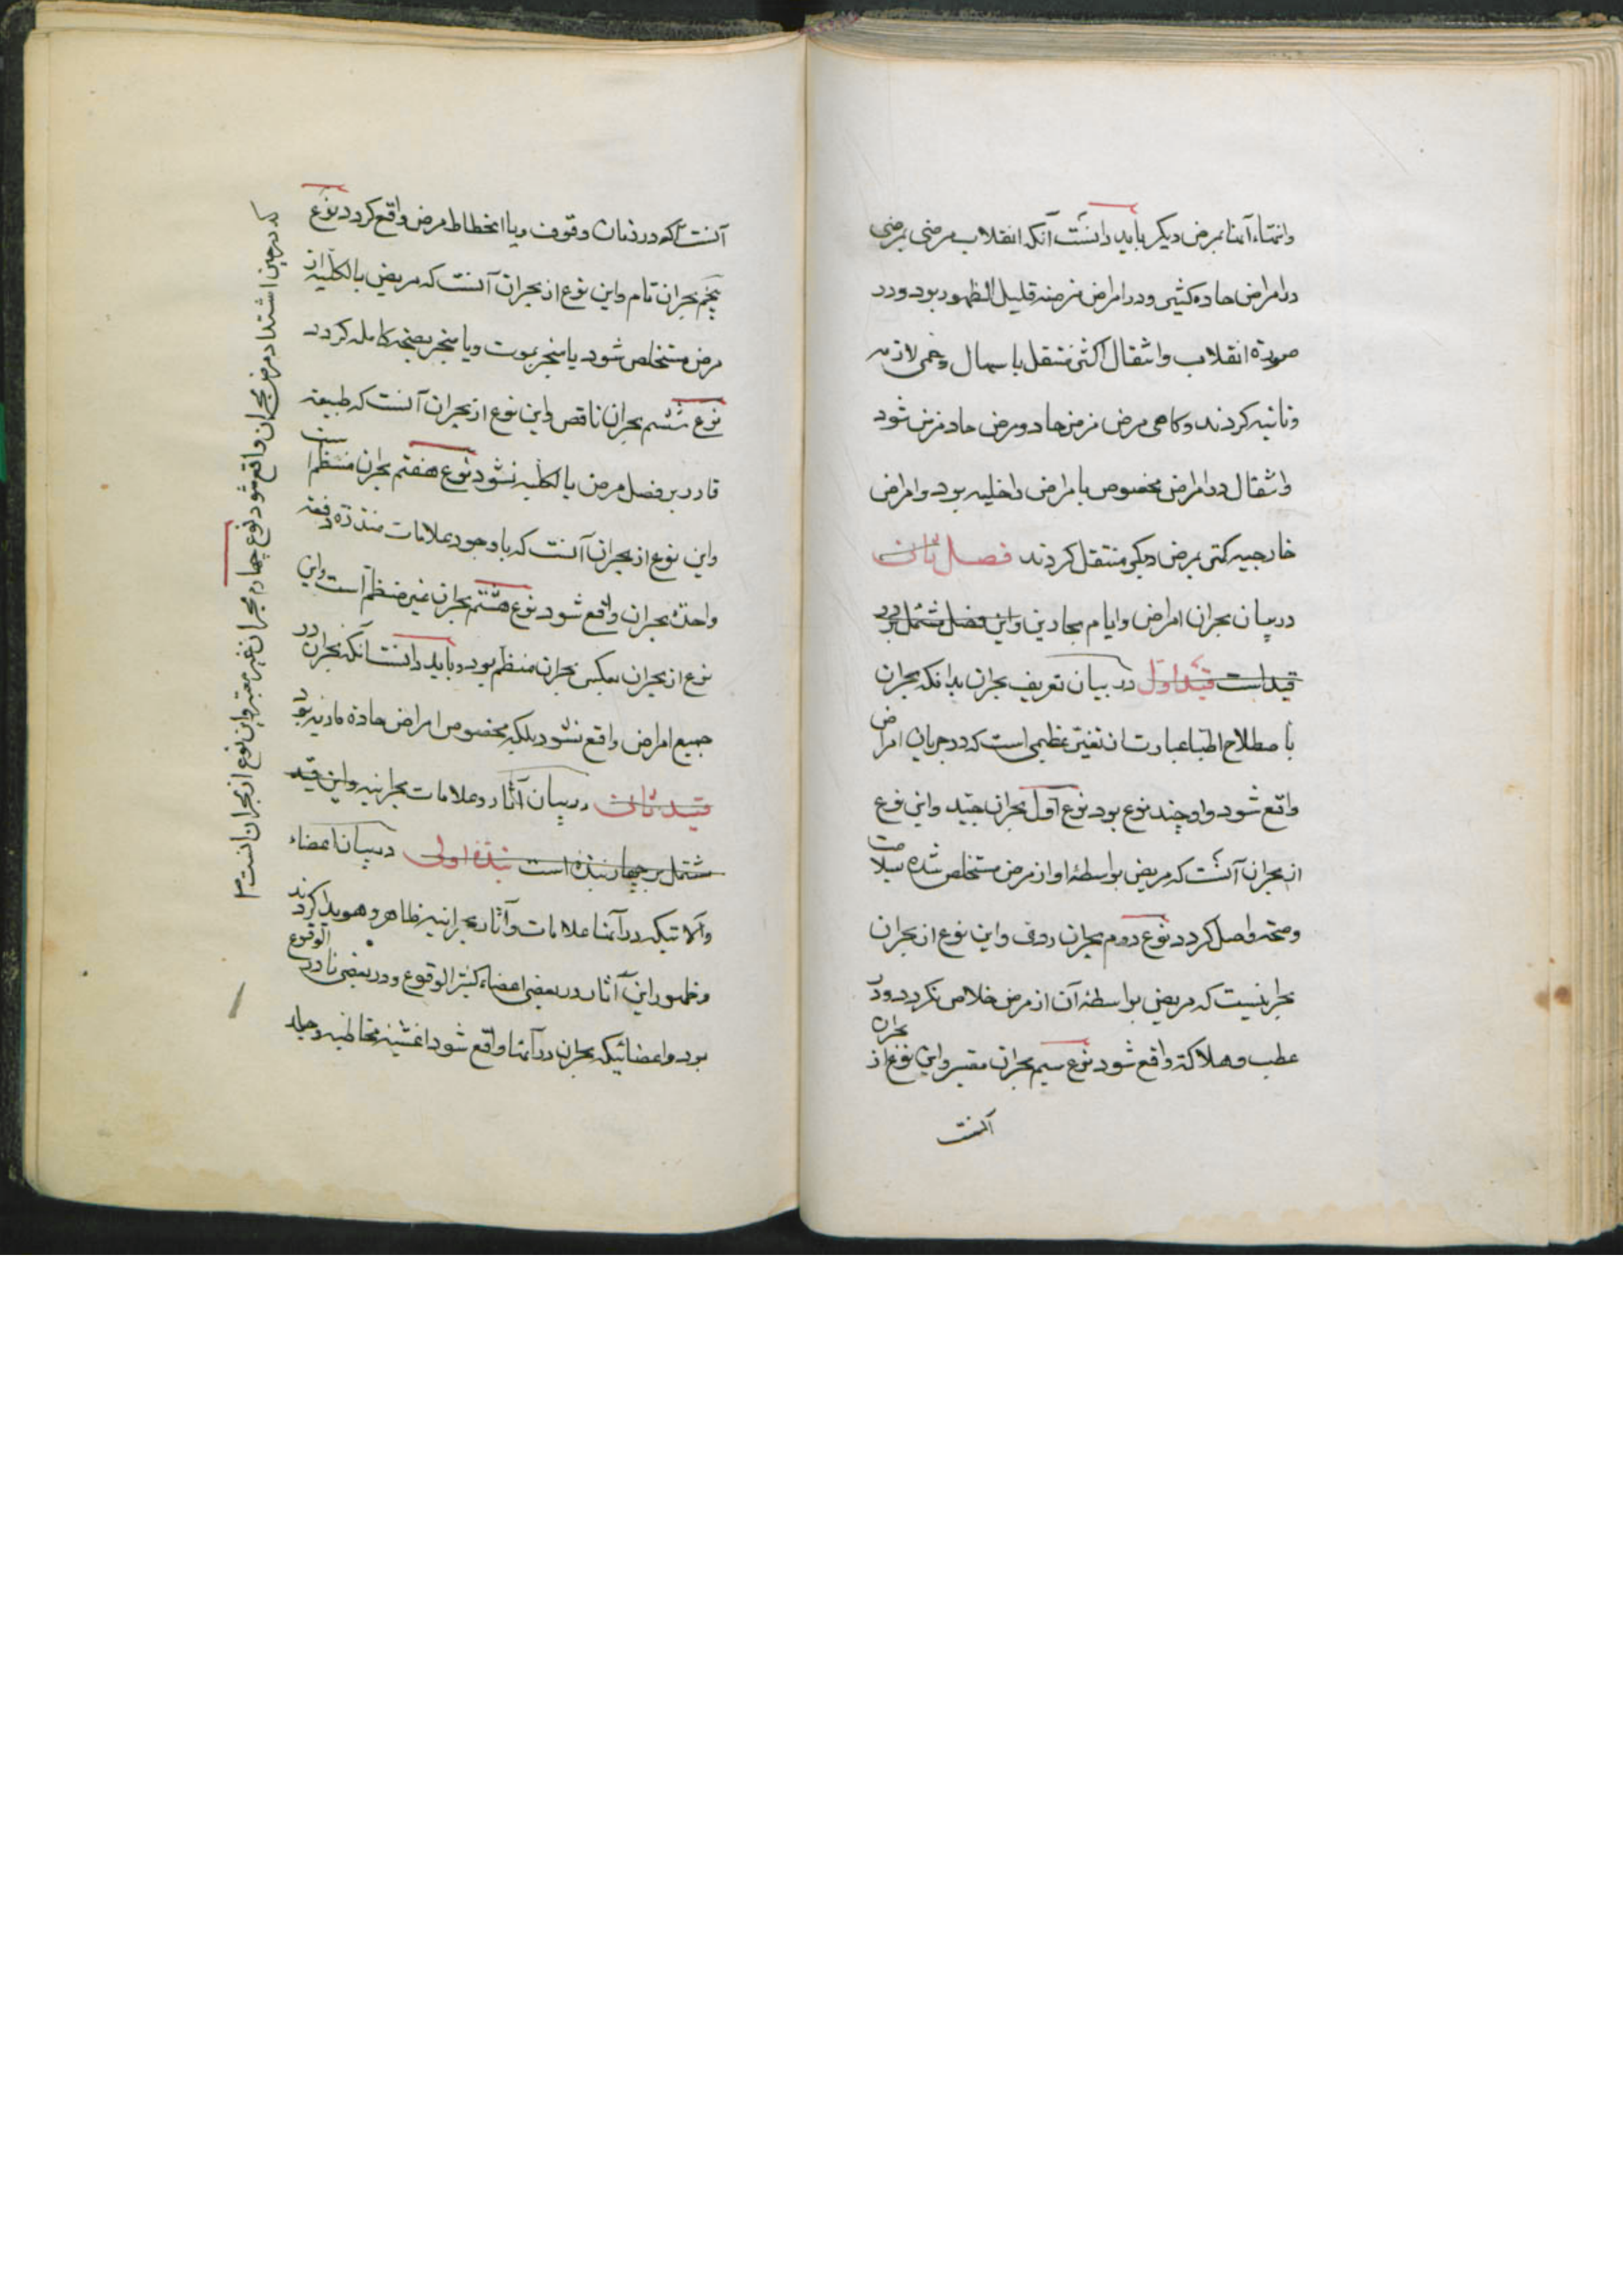 وانتهاء آنها بمرض دیکر باید دانست آنکه انقلاب مرضی بمرضی
در امراض حاده کثیر و در امراض مزمنه قلیل الظهور بود و در
صورة انقلاب و انتقال اکثر منتقل باسهال وحمی لازمه
ونائبه کردند وکاهی مرض مزمن حاد ومرض حاد مزمن شود
وانتقال در امراض مخصوص بامراض داخلیه بود وامراض
خارجیه کمتر بمرض دیکر منتقل کردند فصل ثانی
در بیان بحران امراض وایام بحارین واین فصل مشتمل بر دو
قید است قید اول در بیان تعریف بحران بدانکه بحران
باصطلاح اطبا عبارت از تغیر عظیمی است که در جریان امراض
واقع شود واو چند نوع بود نوع اول بحران جید واین نوع
از بحران آنست که مریض بواسطهٔ او از مرض مستخلص شده بسلامت
وصحة واصل کردد نوع دوم بحران ردی واین نوع از بحران
بحرانیست که مریض بواسطهٔ آن از مرض خلاص نکردد ودر
عطب وهلاکة واقع شود نوع سیم بحران معتبر واین نوع از بحران
آنست
آنست که در زمان وقوف ویا انحطاط مرض واقع کردد نوع
پنجم بحران تام واین نوع از بحران آنست که مریض بالکلیه از
مرض مستخلص شود یا منجر بموت ویا منجر بصحة کامله کردد
نوع ششم بحران ناقص واین نوع از بحران آنست که طبیعة
قادر بر فصل مرض بالکلیه نشود نوع هفتم بحران منتظم است
واین نوع از بحران آنست که باوجود علامات منذره دفعة
واحدة بحران واقع شود نوع هشتم بحران غیر منتظم است واین
نوع از بحران بعکس بحران منتظم بود وباید دانست آنکه بحران در
جمیع امراض واقع نشود بلکه مخصوص امراض حادهٔ مادیه بود
قید ثانی در بیان آثار وعلامات بحرانیه واین قید
مشتمل بر چهار نبذه است نبذهٔ اولی در بیان اعضاء
وآلاتیکه در آنها علامات وآثار بحرانیه ظاهر وهویدا کردند
وظهور این آثار در بعضی اعضاء کثیر الوقوع ودر بعضی نادر الوقوع
بود واعضائیکه بحران در آنها واقع شود اغشیهٔ مخاطیه وجلد
که در حین اشتداد مرض بحران واقع شود نوع چهارم بحران غیر معتبر واین نوع از بحران انست